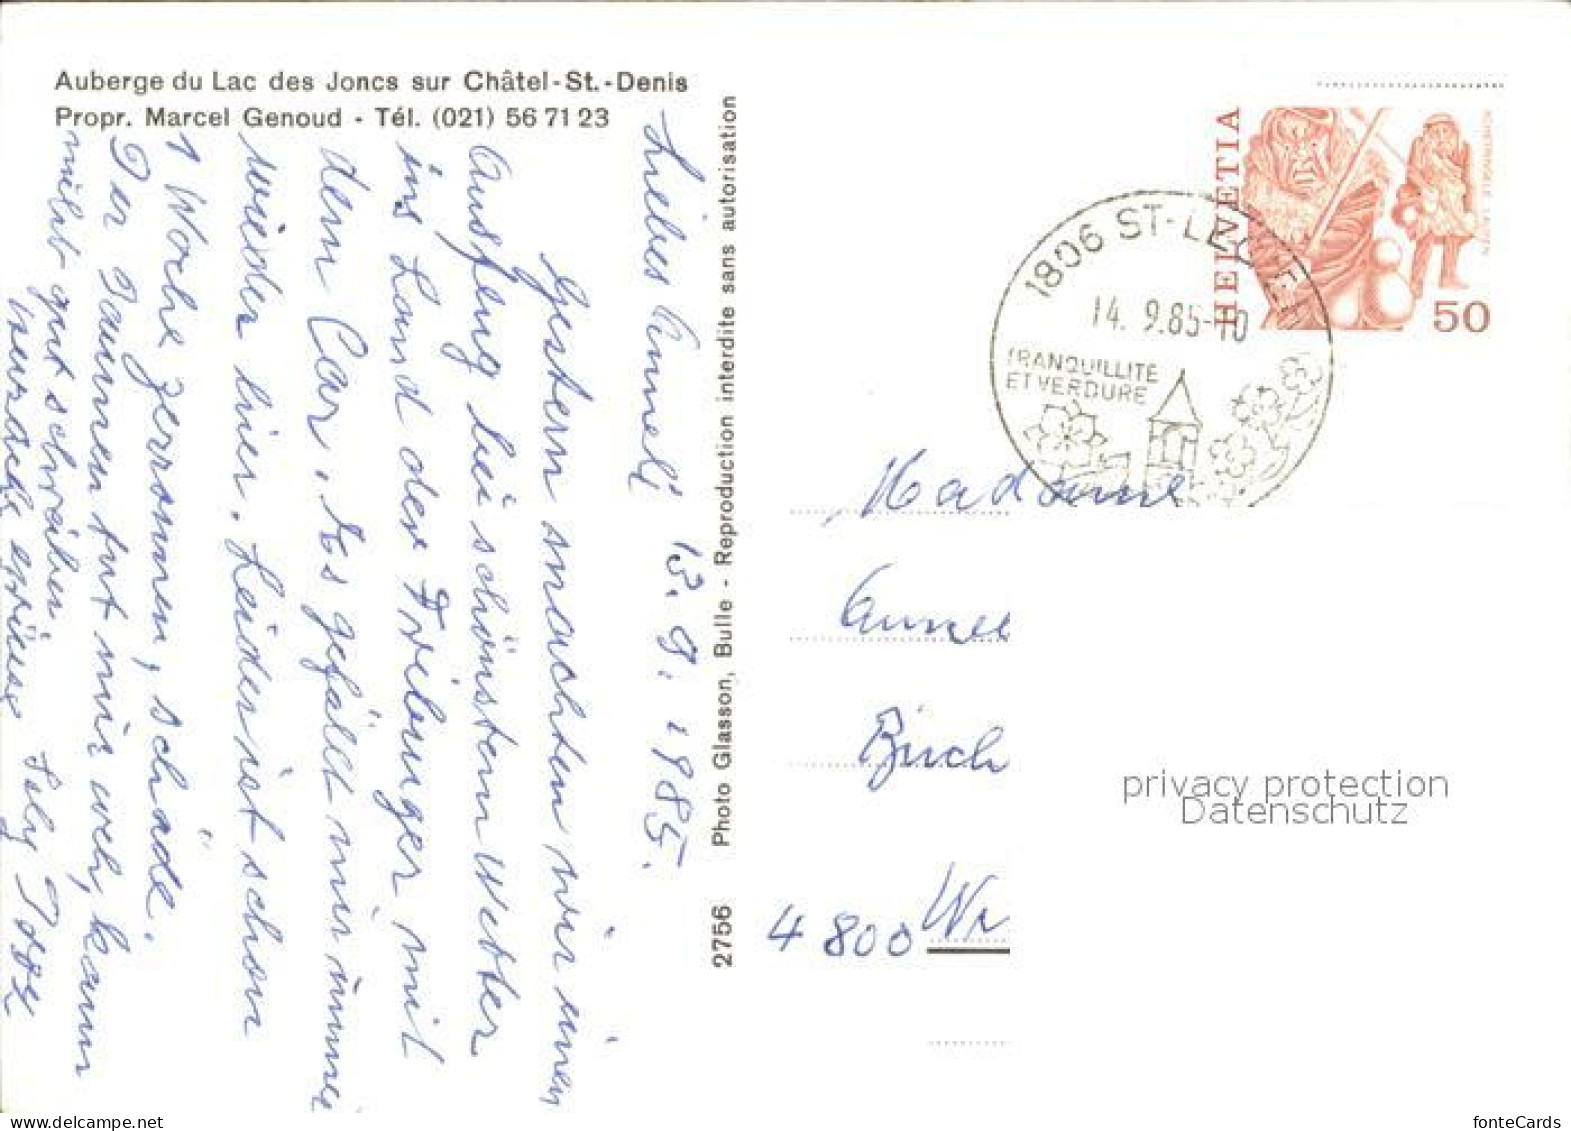 Auberge du Lac des Joncs sur Châtel-St.-Denis
Propr. Marcel Genoud - Tél. (021) 56 71 23
Liebes Anneli 13. 9. 1985.
Gestern machten wir einen
Ausflug bei schönstem Wetter
ins Land der Freiburger mit
dem Car. Es gefällt mir immer
wieder hier. Leider ist schon
1 Woche zerronnen, schade.
Der Daumen tut mir weh, kann
nicht gut schreiben.
2756 Photo Glasson, Bulle - Reproduction interdite sans autorisation
HELVETIA
50
1806 ST-LÉGIER
14. 9.85-10
TRANQUILLITE
ET VERDURE
Madame
Birch
4800
privacy protection
Datenschutz
fonteCards